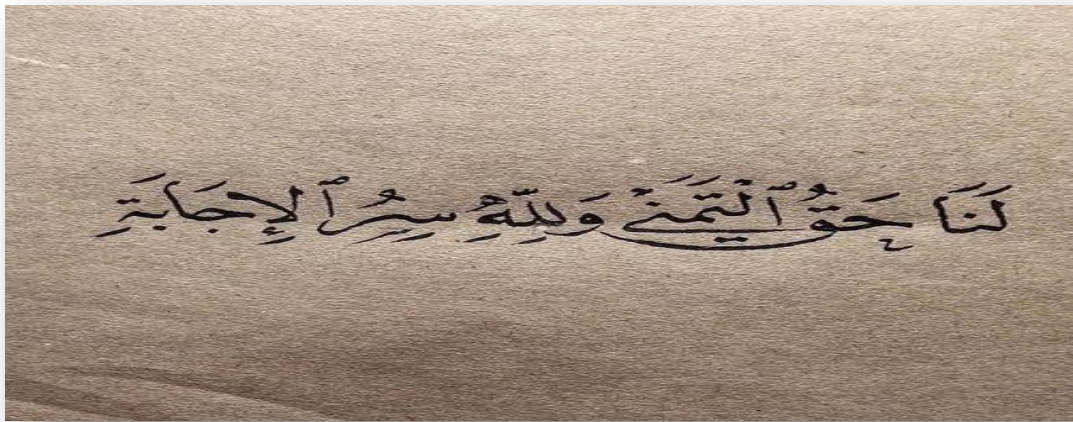 لَنَا حَقُّ ٱلْتَمَنِّے وَلِلّٰهِ سِرُّ ٱلإِجَابَةِ